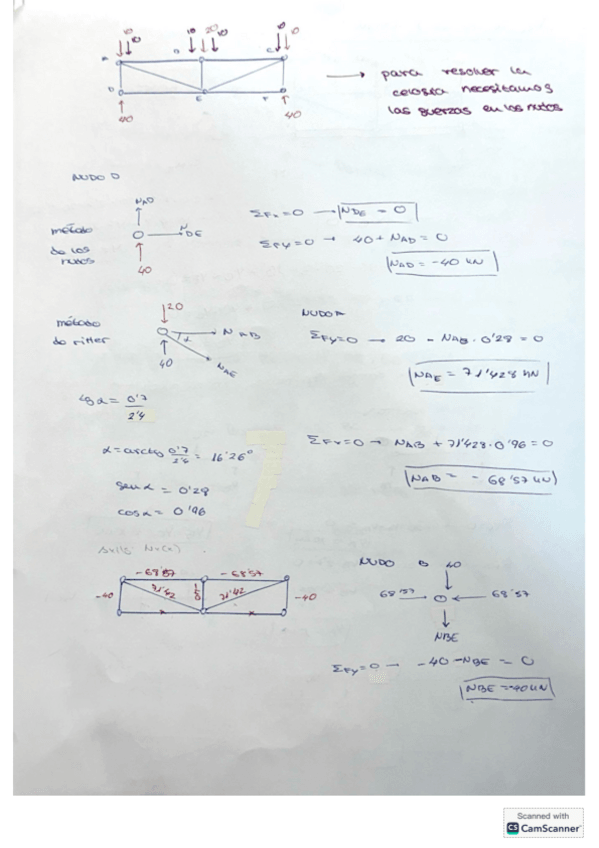 10 10 20 10 10
10 10
A B C
D E F
40 40
→ para resolver la
celosía necesitamos
las fuerzas en los nudos
NUDO D
NAD
método
de los
nudos
NDE
40
ΣFx=0 → NDE = 0
ΣFy=0 → 40 + NAD = 0
NAD = -40 kN
método
de ritter
20
NAB
α
40
NAE
NUDO A
ΣFy=0 → 20 - NAB · 0'28 = 0
NAE = 71'428 kN
tg α = 0'7
2'4
α = arctg 0'7/2'4 = 16'26º
sen α = 0'28
cos α = 0'96
ΣFx=0 → NAB + 71'428 · 0'96 = 0
NAB = - 68'57 kN
-68'57 -68'57
-40 71'42 71'42 -40
NUDO B 40
68'57 → ← 68'57
NBE
ΣFy=0 → -40 - NBE = 0
NBE = -40 kN
Scanned with
CS CamScanner